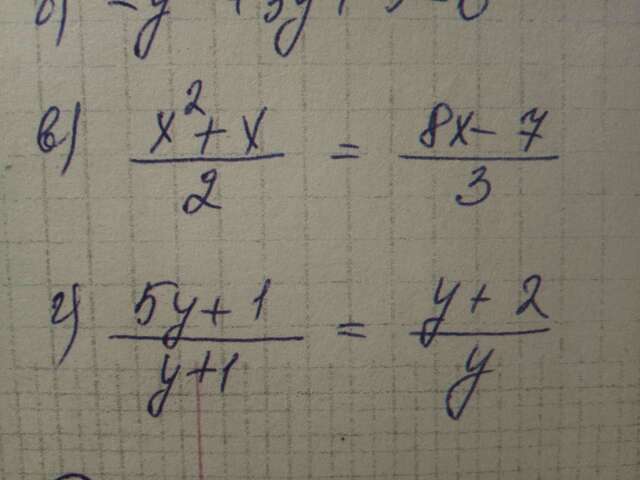 в) x²+x / 2 = 8x-7 / 3
г) 5y+1 / y+1 = y+2 / y